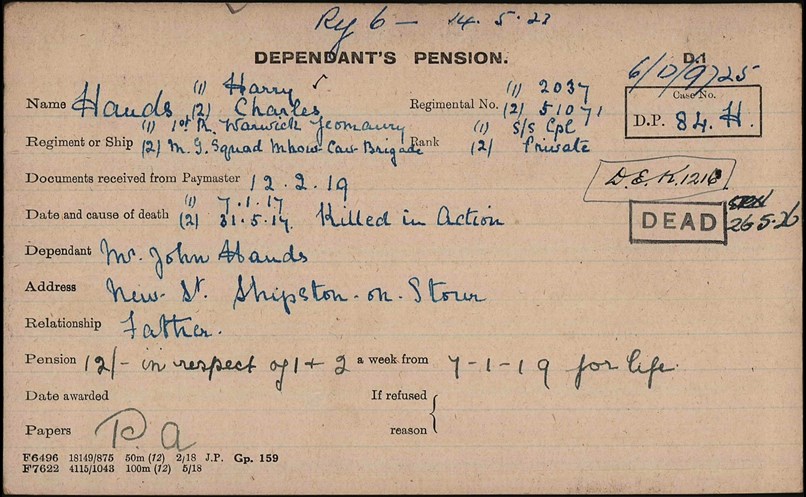 Rg 6 — 14. 5. 23
DEPENDANT'S PENSION.
D.1
6/D/9725
Name Hands (1) Harry ✓
(2) Charles
Regimental No. (1) 2037
(2) 51071
Case No.
D.P. 84. H.
Regiment or Ship (1) 1st R. Warwick Yeomanry
(2) M. G. Squad Mhow Cav Brigade
Rank (1) S/S Cpl
(2) Private
Documents received from Paymaster 12. 2. 19
D.E.K. 1216
Date and cause of death (1) 7. 1. 17
(2) 31. 5. 17. Killed in Action
DEAD
26.5.26
Dependant Mr. John Hands
Address New St. Shipston-on-Stour
Relationship Father.
Pension 12/- in respect of 1 + 2 a week from 7-1-19 for life.
Date awarded
If refused
reason
Papers P. A
F6496 18149/875 50m (12) 2/18 J.P. Gp. 159
F7622 4115/1043 100m (12) 5/18